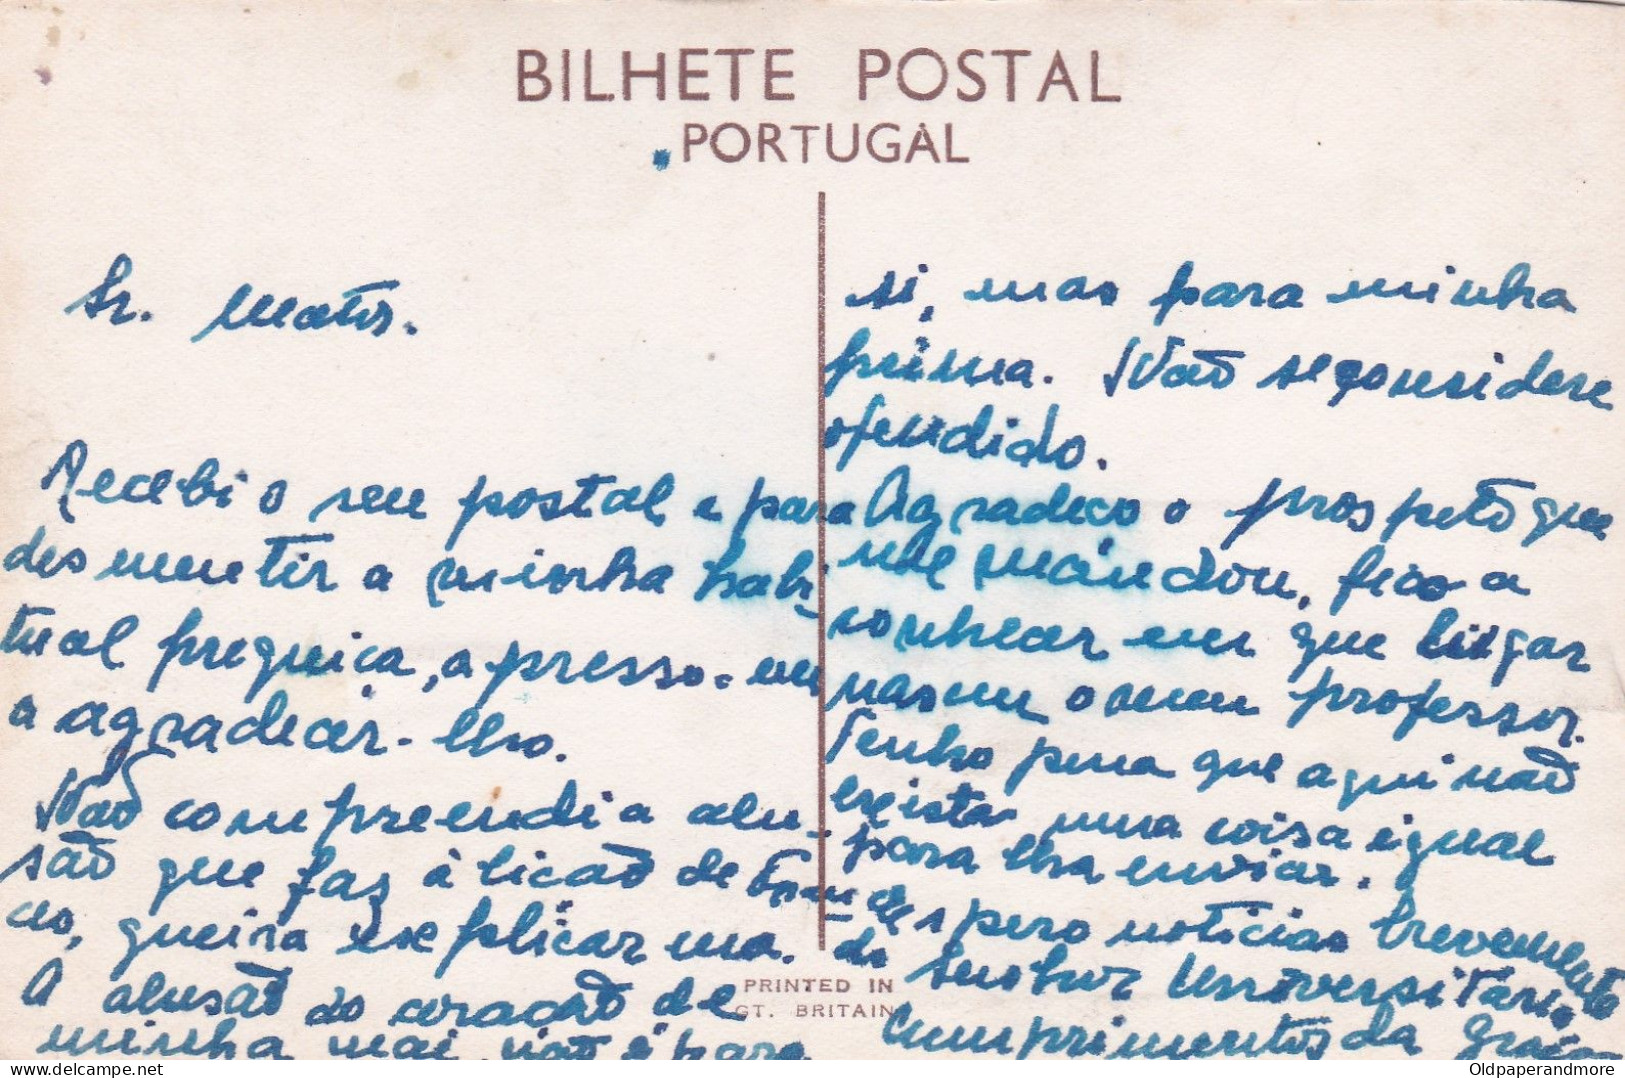 BILHETE POSTAL
PORTUGAL
Sr. Matos.
Recebi o seu postal, e para
desmentir a minha habi-
tual preguiça, apresso-me
a agradecer-lho.
Não compreendi a alu-
são que faz à lição de Fran-
cês, queira explicar-ma.
A alusão do coração de
minha mai, não é para
si, mas para minha
prima. Não se considere
ofendido.
Agradeço o prospeto que
me mandou, fico a
conhecer em que lugar
nasceu o meu professor.
Tenho pena que aqui não
exista uma coisa igual
para lha enviar.
Espero noticias brevemente
do Senhor Universitário.
Cumprimentos da
PRINTED IN
GT. BRITAIN
Oldpaperandmore